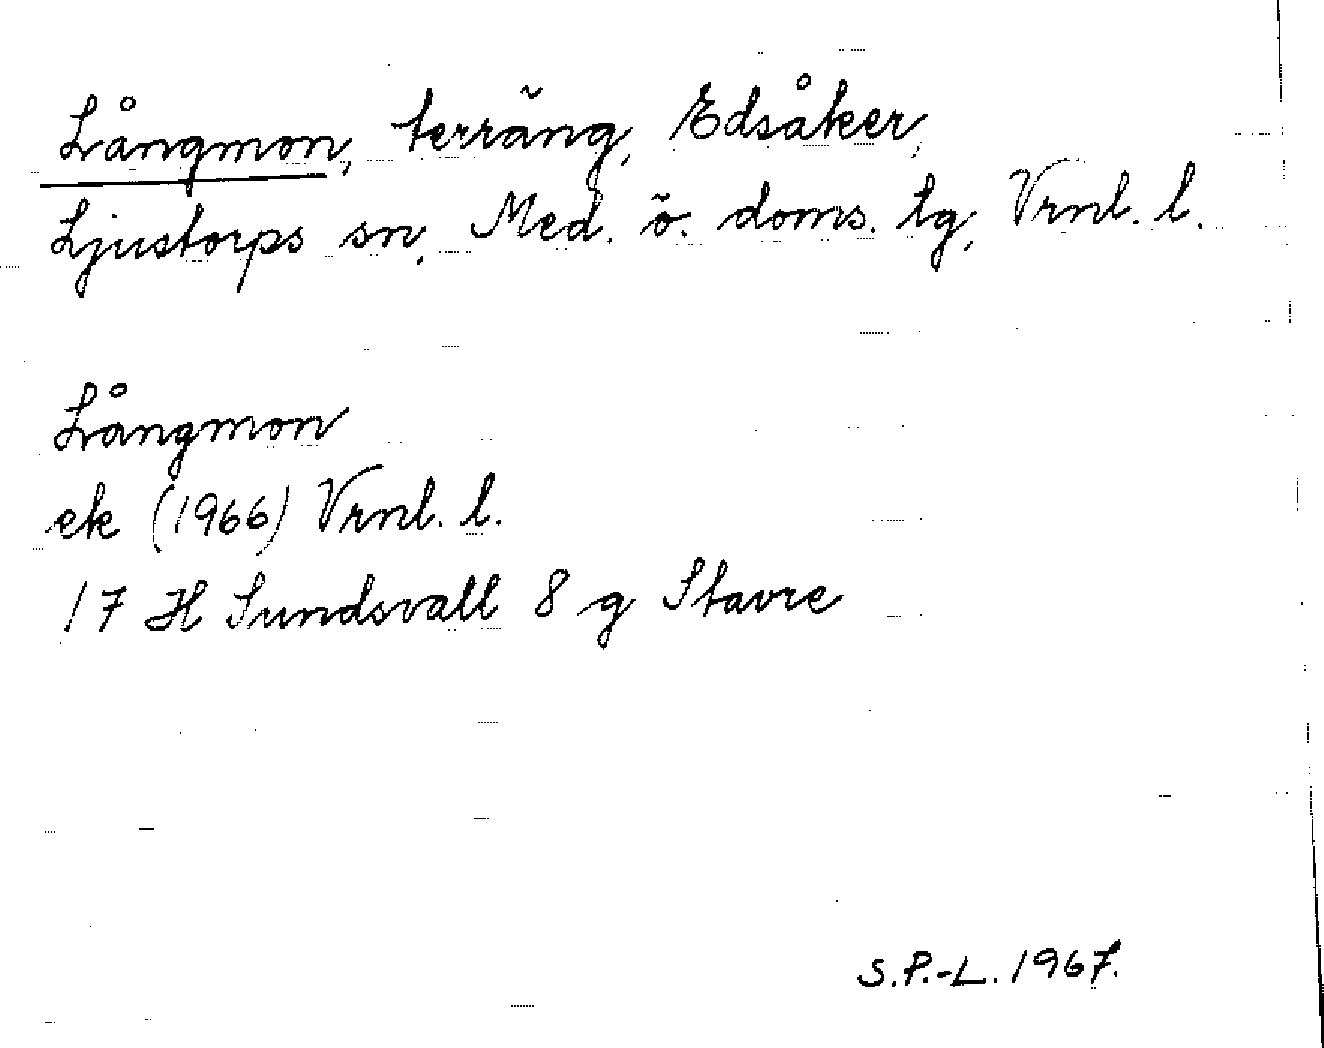 Långmon, terräng, Edsåker,
Ljustorps sn, Med. ö. doms. tg, Vrnl. l.
Långmon
ek (1966) Vrnl. l.
17 H Sundsvall 8 g Stavre
S.P.-L. 1967.